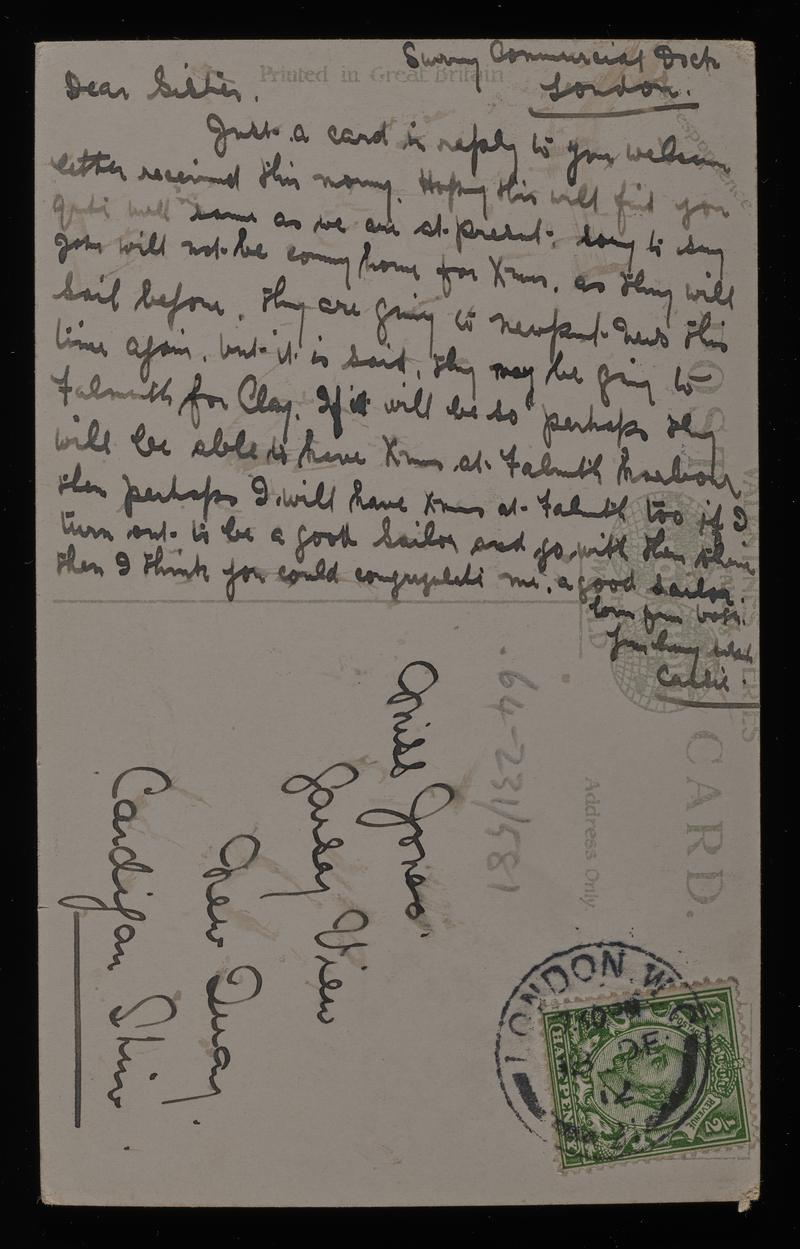 Surrey Commercial Dock
London.
Printed in Great Britain
Dear Sister,
Just a card in reply to your welcome
letter received this morning. Hoping this will find you
quite well same as we are at present, sorry to say
John will not be coming home for Xmas, as they will
sail before, they are going to Newport News this
time again, but it is said, they may be going to
Falmouth for Clay. If it will be so perhaps they
will be able to have Xmas at Falmouth harbour,
then perhaps I will have Xmas at Falmouth too if I
turn out to be a good Sailor and go with them
then I think you could congregulate me, a good sailor.
love from both.
Your loving
POST CARD.
Address Only.
64-231/581
Miss Jones.
View
New Quay.
Cardigan Shire.
LONDON. W.C
DE
12
POSTAGE
REVENUE
HALFPENNY
1/2
1/2